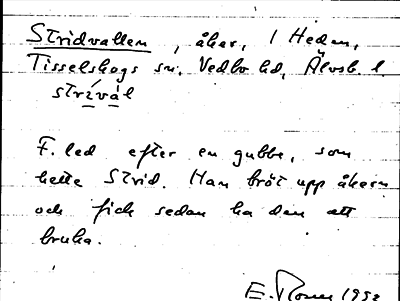 Stridvallen, åker, 1 Heden,
Tisselskogs sn. Vedbo hd, Älvsb. l.
strívál
F. led efter en gubbe, som
hette Strid. Han bröt upp åkern
och fick sedan ha den att
bruka.
E. 1952